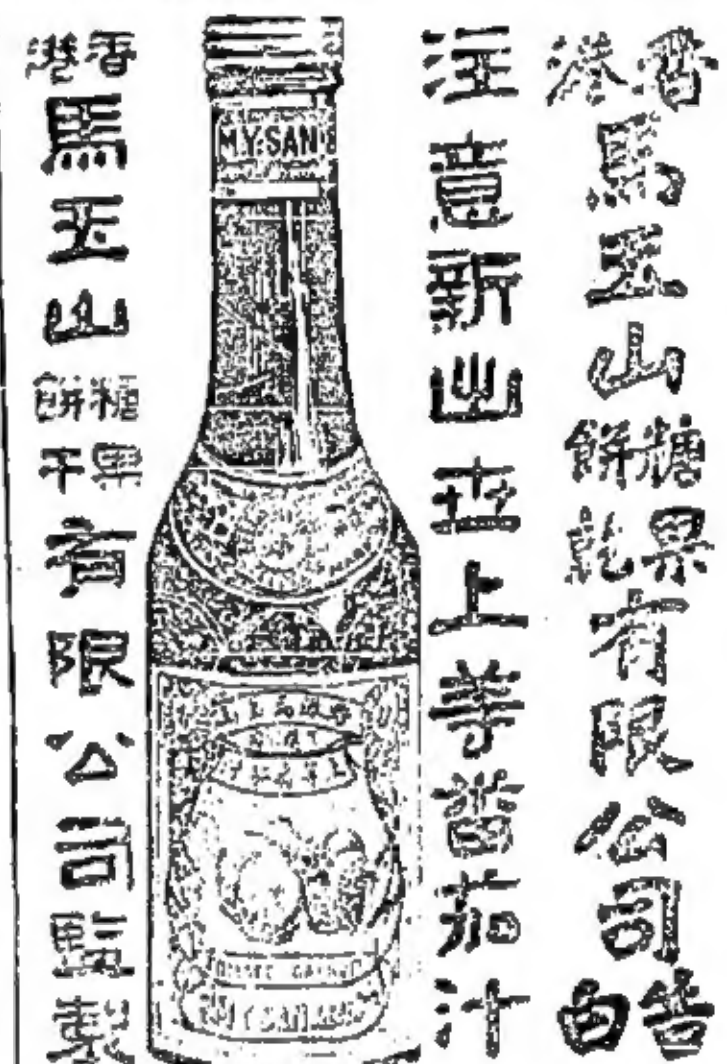 香港馬玉山糖果餅乾有限公司告白
注意新出世上等番茄汁
M.Y.SAN
香港馬玉山糖果餅干有限公司監製